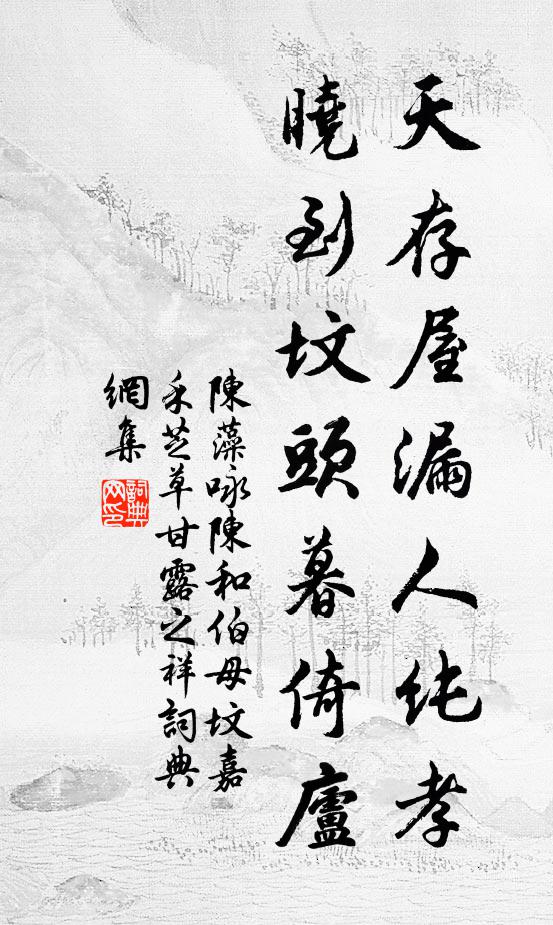 天存屋漏人純孝
曉到坟頭暮倚廬
陳藻咏陳和伯母坟嘉
禾芝草甘露之祥詞典
網集
詞典
网印